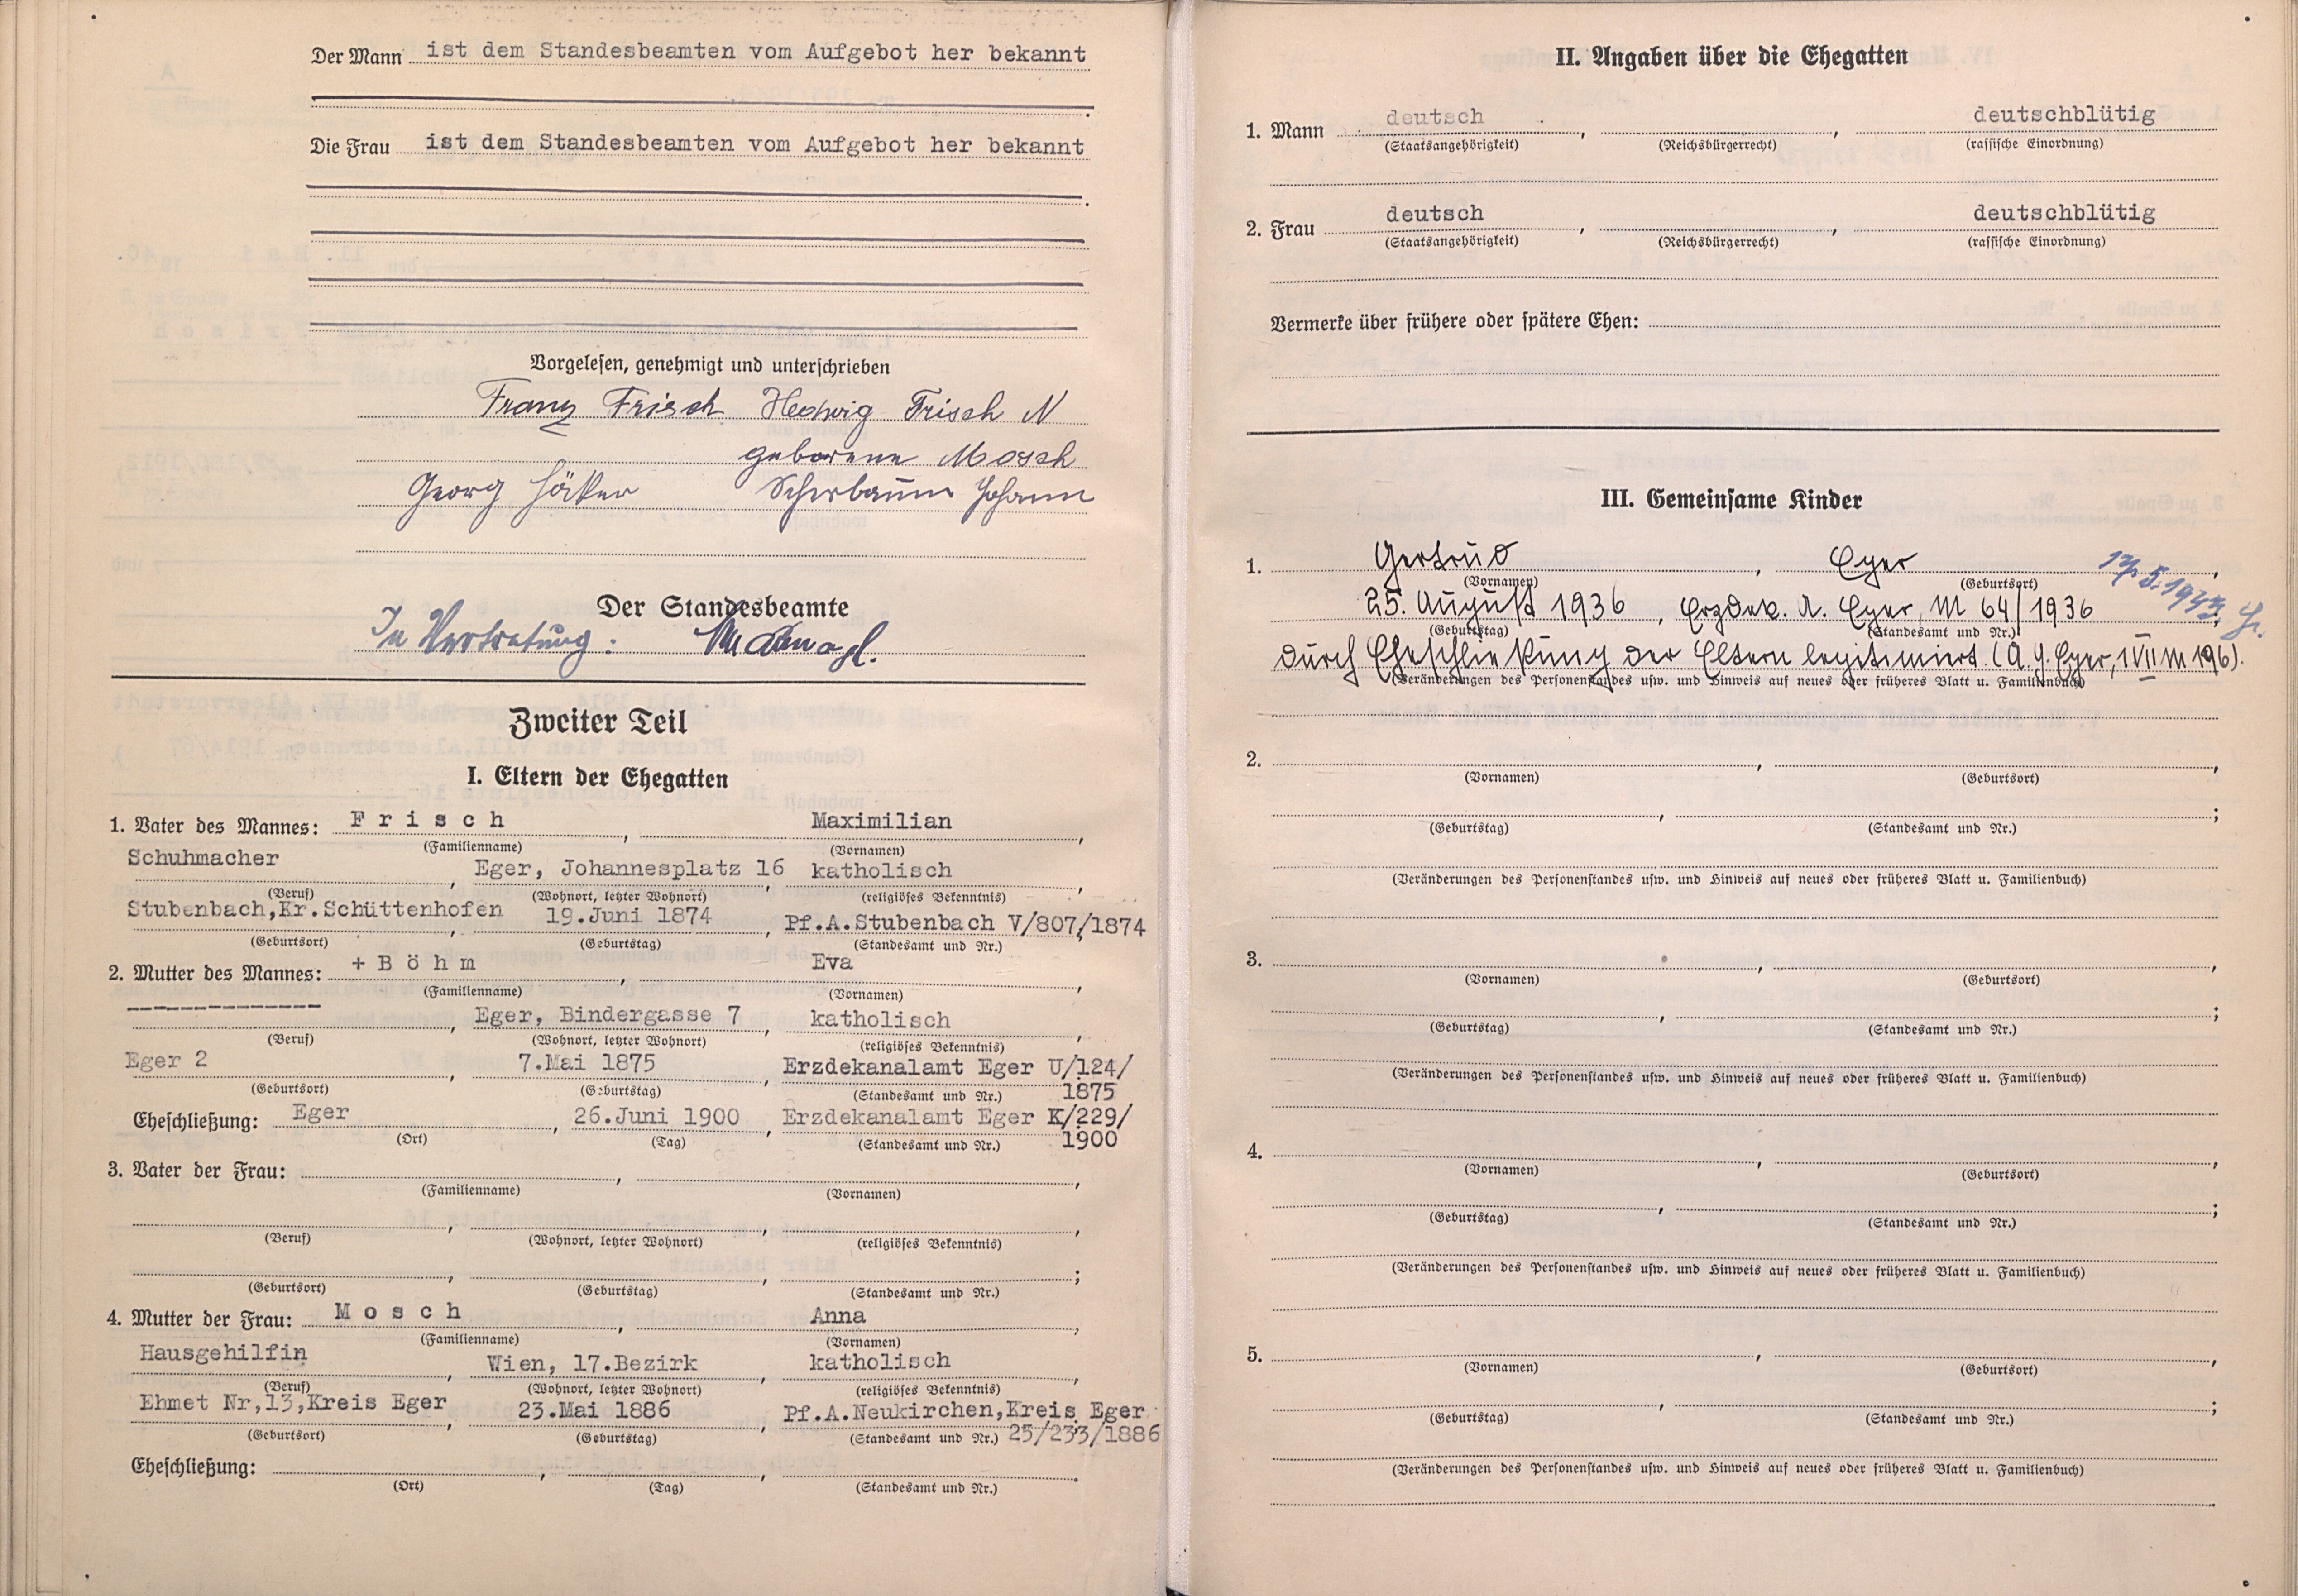 Der Mann ist dem Standesbeamten vom Aufgebot her bekannt
Die Frau ist dem Standesbeamten vom Aufgebot her bekannt
Vorgelesen, genehmigt und unterschrieben
Franz Frisch Hedwig Frisch N
geborene Mosch
Georg Scherbaum Johann
Der Standesbeamte
In Vertretung:
Zweiter Teil
I. Eltern der Ehegatten
1. Vater des Mannes: Frisch, Maximilian,
(Familienname) (Vornamen)
Schuhmacher, Eger, Johannesplatz 16, katholisch,
(Beruf) (Wohnort, letzter Wohnort) (religiöses Bekenntnis)
Stubenbach,Kr.Schüttenhofen, 19.Juni 1874, Pf.A.Stubenbach V/807/1874;
(Geburtsort) (Geburtstag) (Standesamt und Nr.)
2. Mutter des Mannes: + Böhm, Eva,
(Familienname) (Vornamen)
------------, Eger, Bindergasse 7, katholisch,
(Beruf) (Wohnort, letzter Wohnort) (religiöses Bekenntnis)
Eger 2, 7.Mai 1875, Erzdekanalamt Eger U/124/
(Geburtsort) (Geburtstag) (Standesamt und Nr.) 1875
Eheschließung: Eger, 26.Juni 1900, Erzdekanalamt Eger K/229/
(Ort) (Tag) (Standesamt und Nr.) 1900
3. Vater der Frau: , ,
(Familienname) (Vornamen)
, , ,
(Beruf) (Wohnort, letzter Wohnort) (religiöses Bekenntnis)
, , ;
(Geburtsort) (Geburtstag) (Standesamt und Nr.)
4. Mutter der Frau: Mosch, Anna,
(Familienname) (Vornamen)
Hausgehilfin, Wien, 17.Bezirk, katholisch,
(Beruf) (Wohnort, letzter Wohnort) (religiöses Bekenntnis)
Ehmet Nr,13,Kreis Eger, 23.Mai 1886, Pf.A.Neukirchen,Kreis Eger
(Geburtsort) (Geburtstag) (Standesamt und Nr.) 25/233/1886
Eheschließung: , , .
(Ort) (Tag) (Standesamt und Nr.)
II. Angaben über die Ehegatten
1. Mann deutsch, , deutschblütig
(Staatsangehörigkeit) (Reichsbürgerrecht) (rassische Einordnung)
2. Frau deutsch, , deutschblütig
(Staatsangehörigkeit) (Reichsbürgerrecht) (rassische Einordnung)
Vermerke über frühere oder spätere Ehen:
III. Gemeinsame Kinder
1. Gertrud, Eger,
(Vornamen) (Geburtsort)
25. August 1936, Erzdek. A. Eger, M 64/1936
(Geburtstag) (Standesamt und Nr.)
durch Eheschließung der Eltern legitimiert. (A. G. Eger, 1 VII M 196).
(Veränderungen des Personenstandes usw. und Hinweis auf neues oder früheres Blatt u. Familienbuch)
2. , ,
(Vornamen) (Geburtsort)
, ;
(Geburtstag) (Standesamt und Nr.)
(Veränderungen des Personenstandes usw. und Hinweis auf neues oder früheres Blatt u. Familienbuch)
3. , ,
(Vornamen) (Geburtsort)
, ;
(Geburtstag) (Standesamt und Nr.)
(Veränderungen des Personenstandes usw. und Hinweis auf neues oder früheres Blatt u. Familienbuch)
4. , ,
(Vornamen) (Geburtsort)
, ;
(Geburtstag) (Standesamt und Nr.)
(Veränderungen des Personenstandes usw. und Hinweis auf neues oder früheres Blatt u. Familienbuch)
5. , ,
(Vornamen) (Geburtsort)
, ;
(Geburtstag) (Standesamt und Nr.)
(Veränderungen des Personenstandes usw. und Hinweis auf neues oder früheres Blatt u. Familienbuch)